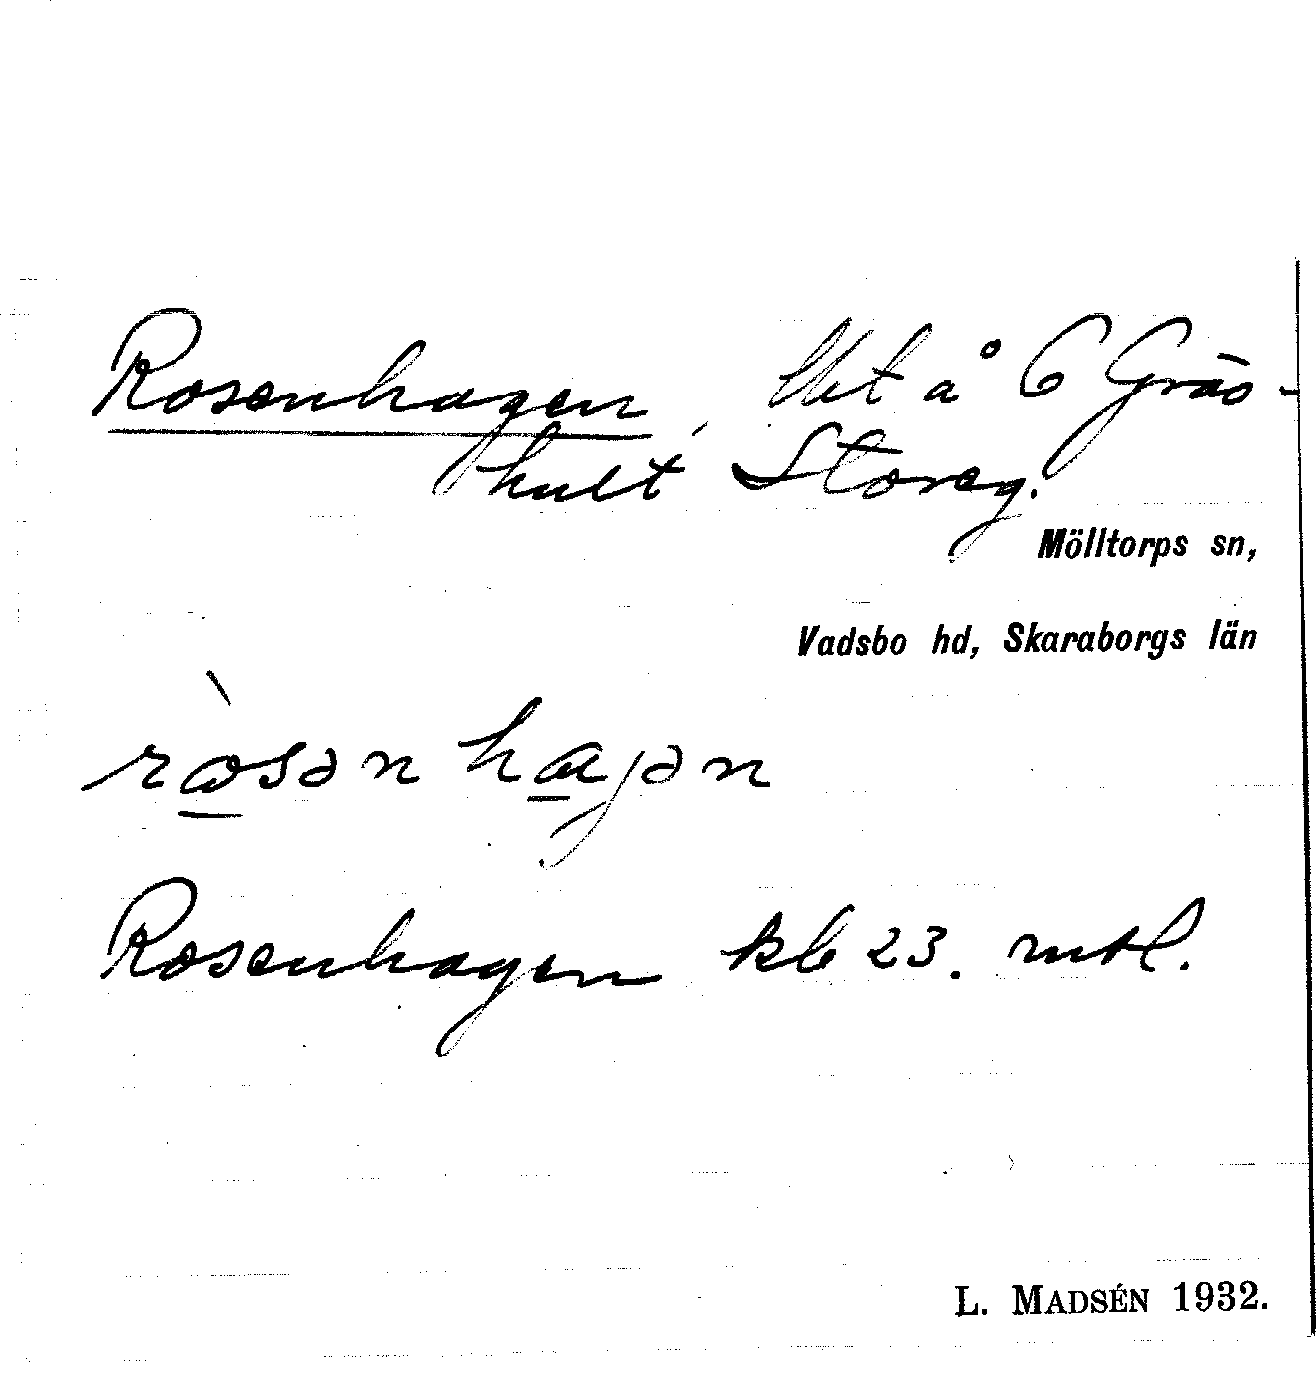 Rosenhagen, Ukt å 6 Gräs-
hult Storeg.
Mölltorps sn,
Vadsbo hd, Skaraborgs län
rɷ̀sən hɑgən
Rosenhagen kb 23. mtl.
L. MADSÉN 1932.